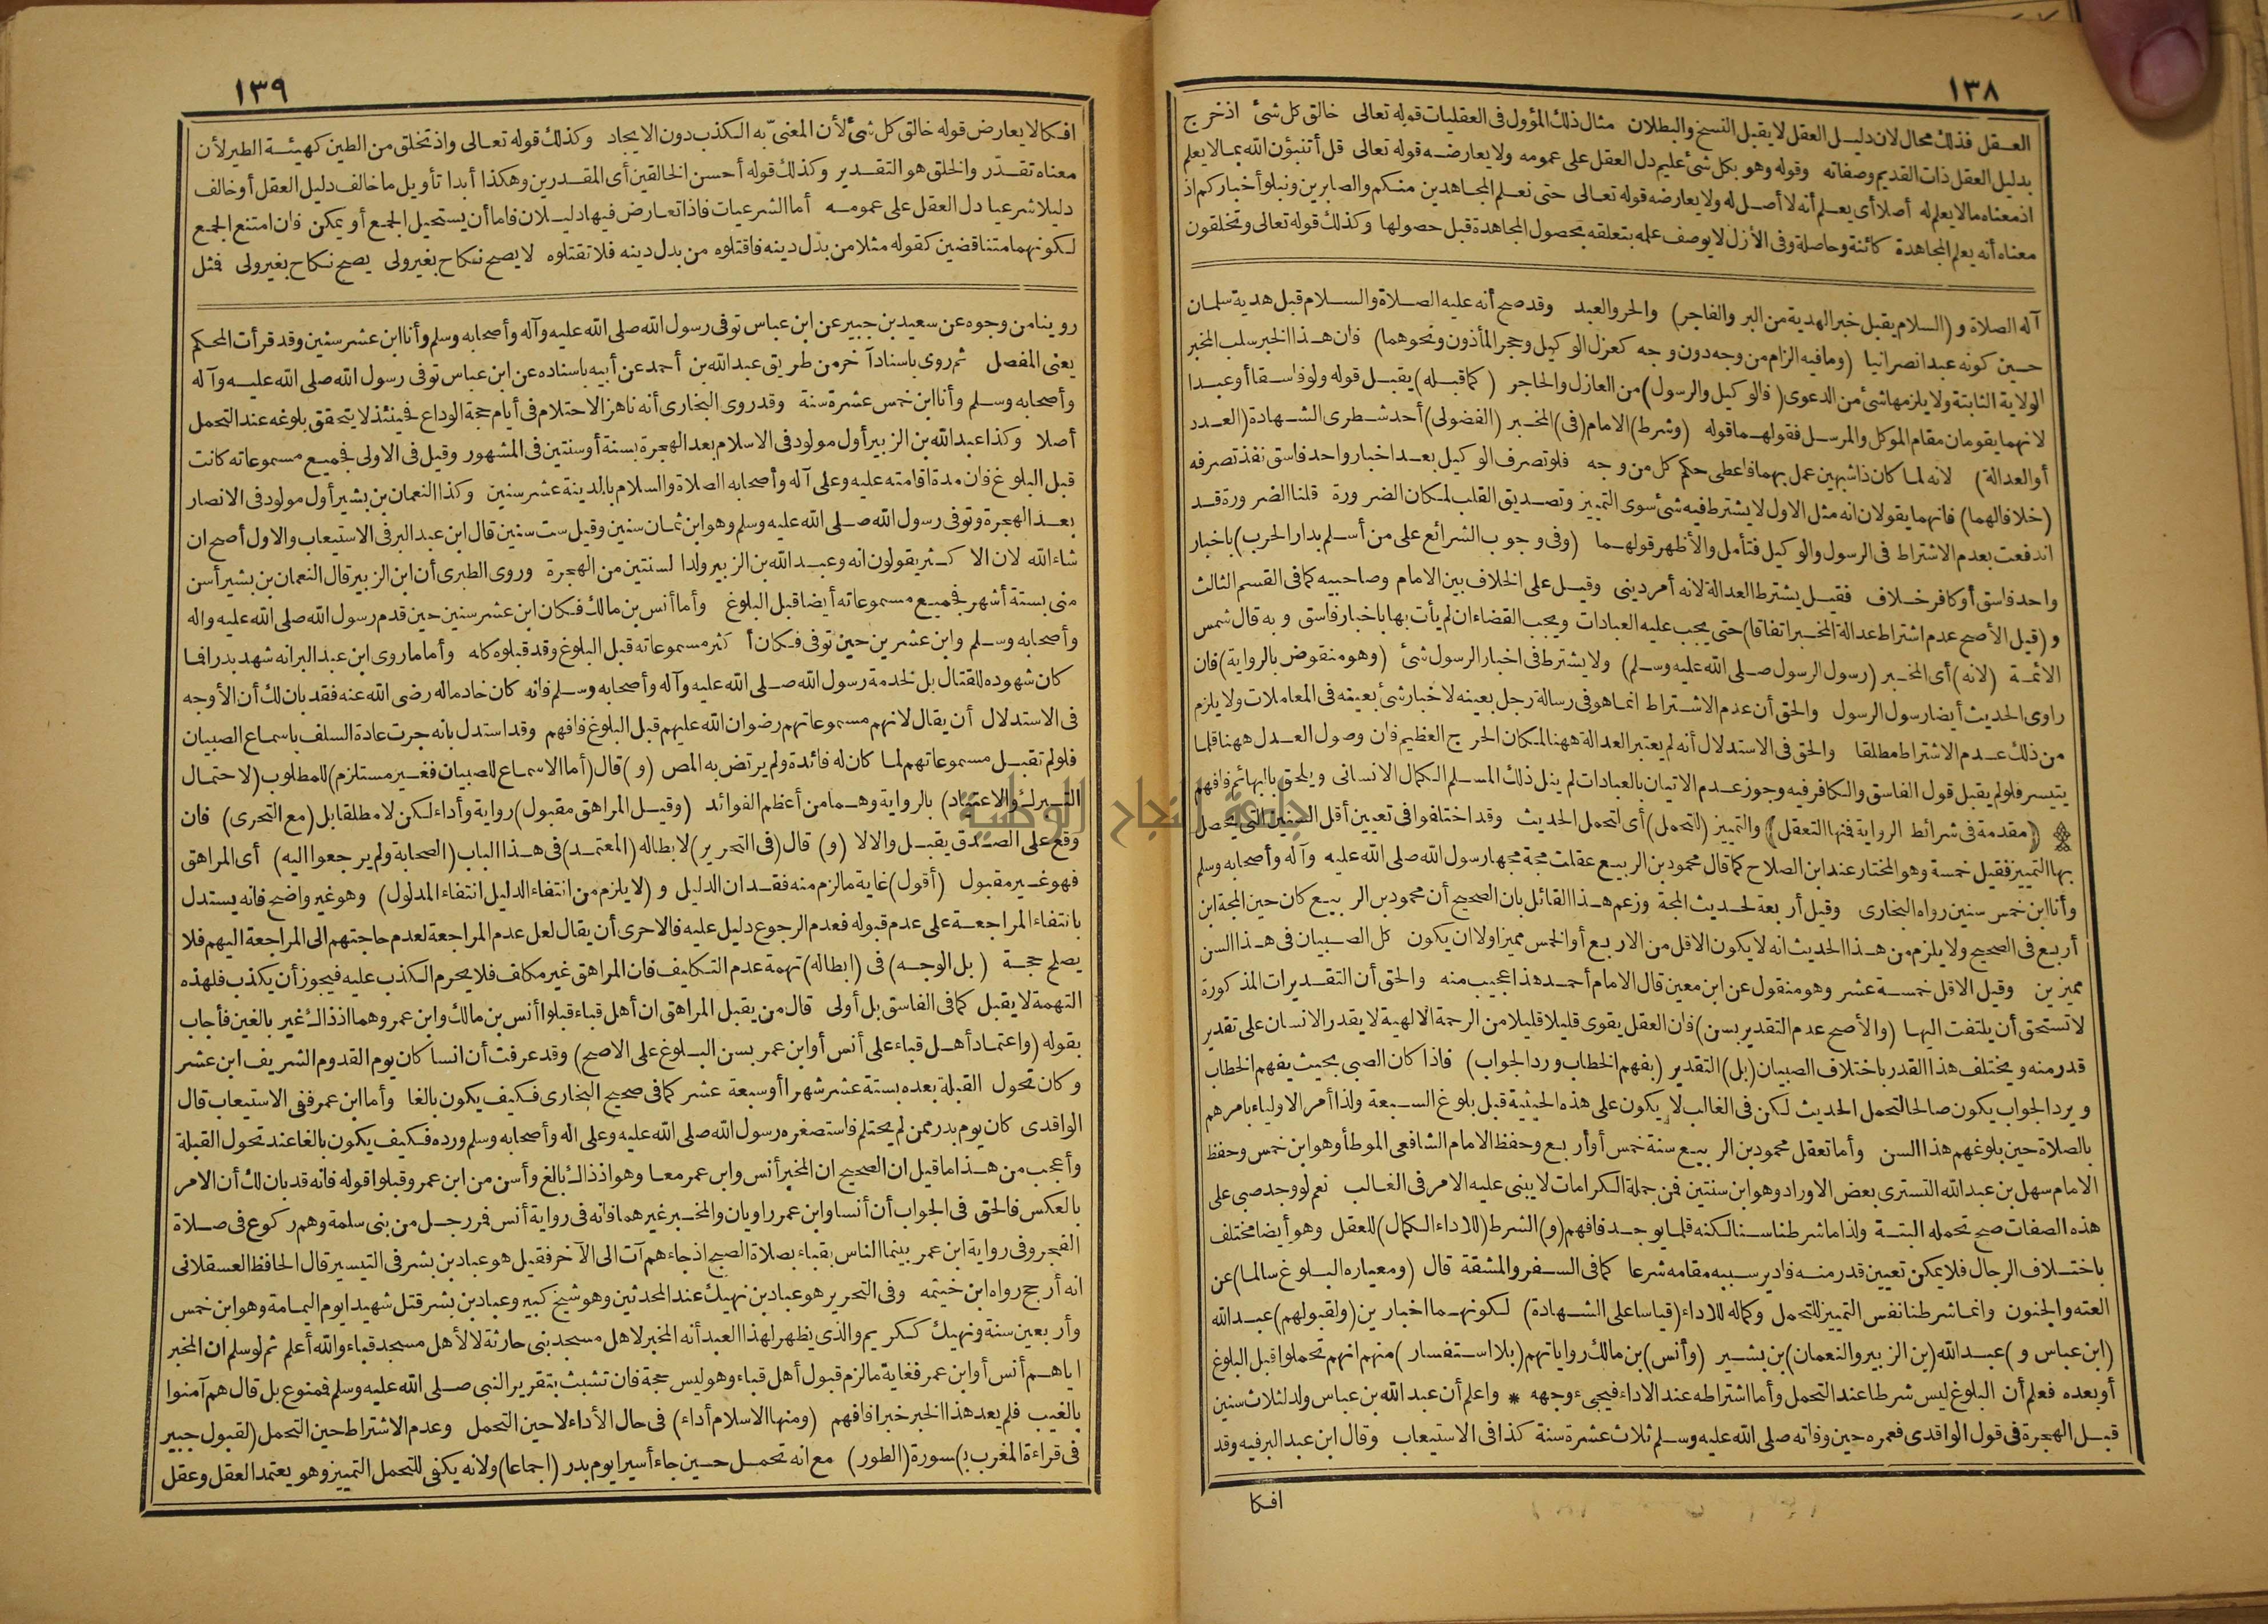 ١٣٨
العـقل فذلك محال لان دليـل العقل لا يقبل النسخ والبطلان مثال ذلك المؤول فى العقليات قوله تعالى خالق كل شئ اذ خرج
بدليل العقل ذات القديم وصفاته وقوله وهو بكل شئ عليم دل العقل على عمومه ولا يعارضـه قوله تعالى قل أتنبؤن الله بما لا يعلم
اذ معناه ما لا يعلم له أصلا أى يعـلم أنه لا أصـل له ولا يعارضه قوله تعالى حتى نعـلم المجاهدين منـكم والصابرين ونبلوأخباركم اذ
معناه أنه يعلم المجاهدة كائنة وحاصلة وفى الأزل لا يوصف علمه بتعلقه بحصول المجاهدة قبل حصولها وكذلك قوله تعالى وتخلقون
آله الصلاة و (السلام يقبل خبر الهدية من البر والفاجر) والحر والعبد وقد صح أنه عليه الصـلاة والسـلام قبل هدية سلمـان
حـسين كونه عبدا نصرانيا (وما فيه الزام من وجه دون وجه كعزل الوكيل وحجر المأذون ونحوهما) فان هـذا الخبر سلب المخبر
الولاية الثابتة ولا يلزمها شئ من الدعوى (فالوكيل والرسول) من العازل والحاجر (كما قبـله) يقبـل قوله ولو فاسـقا أو عبـدا
لانهما يقومان مقام الموكل والمرسـل فقولهـما قوله (وشرط) الامام (فى) المخـبر (الفضولى) أحد شـطرى الشـهادة (العـدد
أو العدالة) لانه لما كان ذا شبهين عمل بهما فاعطى حكم كل من وجه فلو تصرف الوكيل بعـد اخبار واحد فاسق نفذ تصرفه
(خلافا لهما) فانهما يقولان انه مثل الاول لا يشترط فيه شئ سوى التمييز وتصـديق القلب لمـكان الضرورة قلنا الضرورة قـد
اندفعت بعدم الاشتراط فى الرسول والوكيل فتأمل والأظهر قولهـما (وفى وجوب الشرائع على من أسـلم بدار الحرب) باخبار
واحد فاسق أو كافر خـلاف فقيـل يشترط العدالة لانه أمر دينى وقيـل على الخلاف بين الامام وصاحبيه كما فى القسم الثالث
و (قيل الأصح عدم اشتراط عدالة المخـبر اتفاقا) حتى يجب عليه العبادات ويجب القضاء ان لم يأت بها باخبار فاسق وبه قال شمس
الائمـة (لانه) أى المخـبر (رسول الرسول صـلى الله عليه وسـلم) ولا يشترط فى اخبار الرسول شئ (وهو منقوض بالرواية) فان
راوى الحديث أيضا رسول الرسول والحق أن عدم الاشـتراط انما هو فى رسالة رجل بعينه لاخبار شئ بعينه فى المعاملات ولا يلزم
من ذلك عـدم الاشتراط مطلقا والحق فى الاستدلال أنه لم يعتبر العدالة ههنا لمـكان الحرج العظيم فان وصول العـدل ههنا قلمـا
يتيسر فلو لم يقبل قول الفاسق والكافر فيه وجوز عـدم الاتيان بالعبادات لم ينل ذلك المسـلم الكمال الانسانى ويلحق بالبهائم فافهم
(مقدمة فى شرائط الرواية فنها التعقل) والتمييز (للتحمل) أى لتحمل الحديث وقد اختلفوا فى تعيين أقل السنين التى يحصل
بها التمييز فقيل خمسة وهو المختار عند ابن الصلاح كما قال محمود بن الربيع عقلت مجة مجها رسول الله صلى الله عليه وآله وأصحابه وسلم
وأنا ابن خمس سنين رواه البخارى وقيل أربعة لحـديث المجة وزعم هـذا القائل بان الصحيح أن محمود بن الربيـع كان حين المجة ابن
أربع فى الصحيح ولا يلزم من هـذا الحديث انه لا يكون الاقل من الاربع أو الخمس مميزا ولا ان يكون كل الصـبيان فى هـذا السن
مميزين وقيل الاقل خمسـة عشر وهو منقول عن ابن معين قال الامام أحمـد هذا عجيب منه والحق أن التقـديرات المذكورة
لا تستحق أن يلتفت اليها (والأصح عدم التقدير بسن) فان العقل يقوى قليلا قليلا من الرحمة الالهية لا يقدر الانسان على تقدير
قدر منه ويختلف هذا القدر باختلاف الصبيان (بل) التقدير (بفهم الخطاب ورد الجواب) فاذا كان الصبى بحيث يفهم الخطاب
ويرد الجواب يكون صالحا لتحمل الحديث لكن فى الغالب لا يكون على هذه الحيثية قبل بلوغ السـبعة ولذا أمر الاولياء بامرهم
بالصلاة حين بلوغهم هذا السن وأما تعقل محمود بن الربيـع سنة خمس أو أربـع وحفظ الامام الشافعى الموطأ وهو ابن خمس وحفظ
الامام سهل بن عبد الله التسترى بعض الاوراد وهو ابن سنتين فمن جملة الكرامات لا يبنى عليه الامر فى الغـالب نعم لو وجد صبى على
هذه الصفات صح تحمله البتـة ولذا ما شرطنا سـنا لكنه قلما يوجـد فافهم (و) الشرط (للاداء الكمال) للعقل وهو أيضا مختلف
باختـلاف الرجال فلا يمكن تعيين قدر منـه فادير سـببه مقامه شرعا كما فى السـفر والمشقة قال (ومعياره البلـوغ سالما) عن
العته والجنون وانمـا شرطنا نفس التمييز للتحمل وكماله للاداء (قياسا على الشـهادة) لكونهـما اخبارين (ولقبولهم) عبـد الله
(ابن عباس و) عبـد الله (بن الزبير والنعمان) بن بشـير (وأنس) بن مالك رواياتهم (بلا اسـتفسار) منهم انهم تحملوا قبل البلوغ
أو بعده فعلم أن البلوغ ليس شرطا عند التحمل وأما اشتراطه عند الاداء فيجىء وجهه * واعلم أن عبد الله بن عباس ولد لثلاث سنين
قبـل الهجرة فى قول الواقدى فعمره حين وفاته صلى الله عليه وسـلم ثلاث عشرة سنة كذا فى الاستيعاب وقال ابن عبد البر فيه وقد
افكا
١٣٩
افـكا لا يعارض قوله خالق كل شئ لأن المعنىّ به الكذب دون الايجاد وكذلك قوله تعـالى واذ تخلق من الطين كهيئـة الطير لأن
معناه تقـدّر والخلق هو التقـدير وكذلك قوله أحسن الخالقين أى المقـدرين وهكذا أبدا تأويل ما خالف دليل العقل أو خالف
دليلا شرعيا دل العقل على عمومـه أما الشرعيات فاذا تعـارض فيها دليـلان فاما أن يستحيل الجمـع أو يمكن فان امتنع الجمع
لـكونهما متناقضين كقوله مثلا من بدّل دينه فاقتلوه من بدل دينه فلا تقتلوه لا يصح نـكاح بغير ولى يصح نـكاح بغير ولى فمثل
روينا من وجوه عن سعيد بن جبير عن ابن عباس توفى رسول الله صلى الله عليه وآله وأصحابه وسلم وأنا ابن عشر سنين وقد قرأت المحكم
يعنى المفصل ثم روى باسناد آخر من طريق عبد الله بن أحمد عن أبيه باسناده عن ابن عباس توفى رسول الله صلى الله عليـه وآله
وأصحابه وسـلم وأنا ابن خمس عشرة سنة وقد روى البخارى أنه ناهز الاحتلام فى أيام حجة الوداع فحينئذ لا يتحقق بلوغه عند التحمل
أصلا وكذا عبد الله بن الزبير أول مولود فى الاسلام بعد الهجرة بسنة أو سنتين فى المشهور وقيل فى الاولى فجميـع مسموعاته كانت
قبل البلوغ فان مدة اقامته عليه وعلى آله وأصحابه الصلاة والسلام بالمدينة عشر سنين وكذا النعمان بن بشير أول مولود فى الانصار
بعـد الهجرة وتوفى رسول الله صـلى الله عليه وسلم وهو ابن ثمـان سنين وقيل ست سنين قال ابن عبد البر فى الاستيعاب والاول أصح ان
شاء الله لان الاكـثر يقولون انه وعبـد الله بن الزبير ولدا لسنتين من الهجرة وروى الطبرى أن ابن الزبير قال النعمان بن بشير أسن
منى بستة أشهر فجميـع مسموعاته أيضا قبل البلوغ وأما أنس بن مالك فـكان ابن عشر سنين حين قدم رسول الله صلى الله عليه واله
وأصحابه وسـلم وابن عشرين حين توفى فـكان أكثر مسموعاته قبل البلوغ وقد قبلوه كله وأما ما روى ابن عبد البر انه شهد بدرا فما
كان شهوده للقتال بل لخدمة رسول الله صـلى الله عليه وآله وأصحابه وسـلم فانه كان خادما له رضى الله عنه فقد بان لك أن الأوجه
فى الاستدلال أن يقال لانهم مسموعاتهم رضوان الله عليهم قبل البلوغ فافهم وقد استدل بانه جرت عادة السلف باسماع الصبيان
فلو لم تقبـل مسموعاتهم لمـا كان له فائدة ولم يرتض به المص (و) قال (أما الاسماع للصبيان فغـير مستلزم) للمطلوب (لاحتمـال
التـبرك والاعتياد) بالرواية وهـما من أعظم الفوائد (وقيـل المراهق مقبول) رواية وأداء لـكن لا مطلقا بل (مع التحرى) فان
وقع على الصـدق يقبـل والا لا (و) قال (فى التحرير) لابطاله (المعتمـد) فى هـذا الباب (الصحابة ولم يرجعوا اليه) أى المراهق
فهو غـير مقبول (أقول) غاية ما لزم منه فقـدان الدليل و (لا يلزم من انتفاء الدليل انتفاء المدلول) وهو غير واضح فانه يستدل
بانتفاء المراجعـة على عدم قبوله فعدم الرجوع دليل عليه فالاحرى أن يقال لعل عدم المراجعة لعدم حاجتهم الى المراجعة اليهم فلا
يصلح حجـة (بل الوجـه) فى (ابطاله) تهمة عدم التـكليف فان المراهق غير مكلف فلا يحرم الكذب عليه فيجوز أن يكذب فلهذه
التهمة لا يقبل كما فى الفاسق بل أولى قال من يقبل المراهق ان أهل قباء قبلوا أنس بن مالك وابن عمر وهما اذ ذاك غير بالغين فأجاب
بقوله (واعتمـاد أهـل قباء على أنس أو ابن عمر بسن البـلوغ على الاصح) وقد عرفت أن انسا كان يوم القدوم الشريف ابن عشر
وكان تحول القبلة بعده بستة عشر شهرا أو سبعة عشر كما فى صحيح البخارى فـكيف يكون بالغا وأما ابن عمر ففى الاستيعاب قال
الواقدى كان يوم بدر ممن لم يحتلم فاستصغره رسول الله صلى الله عليه وعلى اله وأصحابه وسلم ورده فـكيف يكون بالغا عند تحول القبلة
وأعجب من هـذا ما قيل ان الصحيح ان المخبر أنس وابن عمر معـا وهو اذ ذاك بالغ وأسن من ابن عمر وقبلوا قوله فانه قد بان لك أن الامر
بالعكس فالحق فى الجواب أن أنسا وابن عمر راويان والمخـبر غيرهما فانه فى رواية أنس فمر رجـل من بنى سلمة وهم ركوع فى صـلاة
الفجر وفى رواية ابن عمر بينما الناس بقباء بصلاة الصبح اذ جاءهم آت الى الآخر فقيل هو عباد بن بشر فى التيسير قال الحافظ العسقلانى
انه أرجح رواه ابن خيثمه وفى التحرير هو عباد بن نهيك عند المحدثين وهو شيخ كبير وعباد بن بشر قتل شهيدا يوم اليمـامة وهو ابن خمس
وأربعين سنة ونهيك ككريم والذى يظهر لهذا العبد أنه المخبر لاهل مسجد بنى حارثة لا لأهل مسجد قباء والله أعلم ثم لو سلم ان المخبر
اياهـم أنس أو ابن عمر فغاية ما لزم قبول أهل قباء وهو ليس حجة فان تشبث بتقرير النبى صـلى الله عليه وسلم فممنوع بل قال هم آمنوا
بالغيب فلم يعد هذا الخبر خبرا فافهم (ومنها الاسلام أداء) فى حال الأداء لا حين التحمل وعدم الاشتراط حين التحمل (لقبول جبير
فى قراءة المغرب بـ) سورة (الطور) مع انه تحمـل حـين جاء أسيرا يوم بدر (اجماعا) ولانه يكفى للتحمل التمييز وهو يعتمد العقل وعقل
جامعة النجاح الوطنية